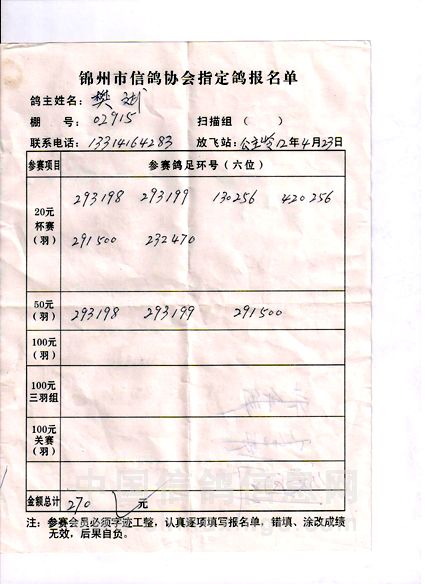 锦州市信鸽协会指定鸽报名单
鸽主姓名：樊斌
棚 号：02915 扫描组（ ）
联系电话：13314164283 放飞站：公主岭12年4月23日
参赛项目 参赛鸽足环号（六位）
20元杯赛（羽） 293198 293199 130256 420256
291500 232470
50元（羽） 293198 293199 291500
100元（羽）
100元三羽组
100元关赛（羽）
中国信鸽信息网
金额总计 270 元
注：参赛会员必须字迹工整，认真逐项填写报名单，错填、涂改成绩
无效，后果自负。